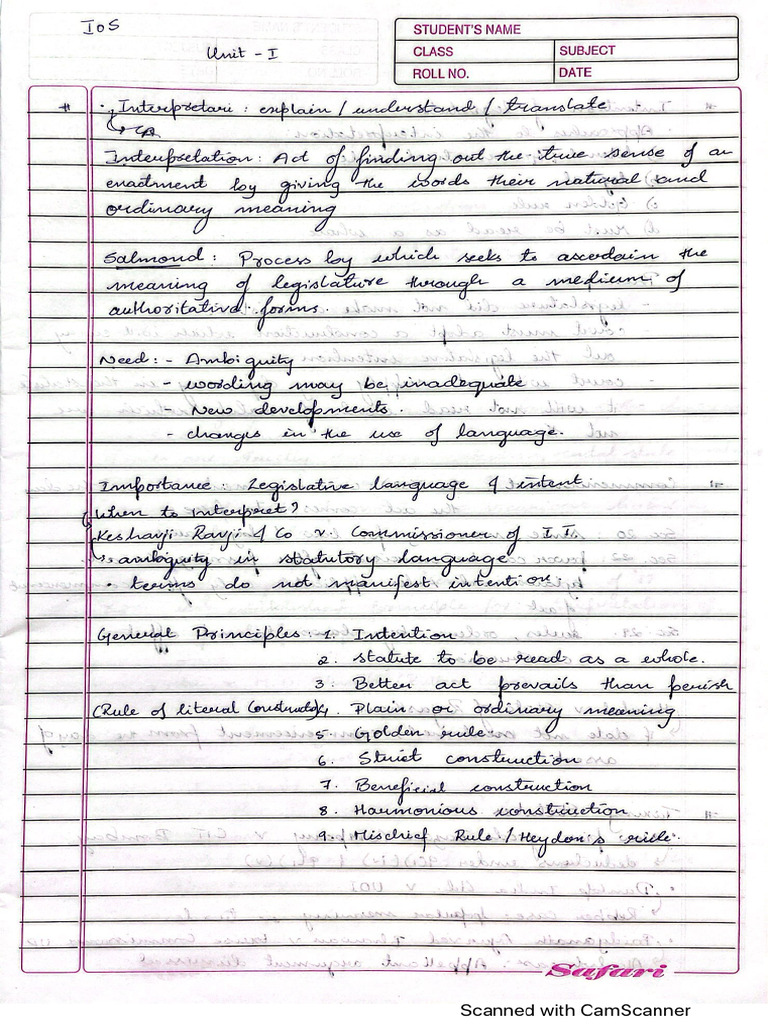 IoS
Unit - I
STUDENT'S NAME
CLASS SUBJECT
ROLL NO. DATE
# · Interpretari : explain / understand / translate
Interpretation : Act of finding out the true sense of an
enactment by giving the words their natural and
ordinary meaning
Salmond : Process by which seeks to ascertain the
meaning of legislature through a medium of
authoritative forms.
Need : - Ambiguity
- wording may be inadequate
- New developments.
- changes in the use of language.
Importance : Legislative language & intent
When to interpret?
Keshavji Ravji & Co v. Commissioner of I T.
ambiguity in statutory language
· terms do not manifest intention
General Principles : 1. Intention
2. statute to be read as a whole.
3. Better act prevails than perish
(Rule of literal Construction) 4. Plain or ordinary meaning
5. Golden rule
6. Strict construction
7. Beneficial construction
8. Harmonious construction
9. Mischief Rule / Heydon's rule.
Safari
Scanned with CamScanner